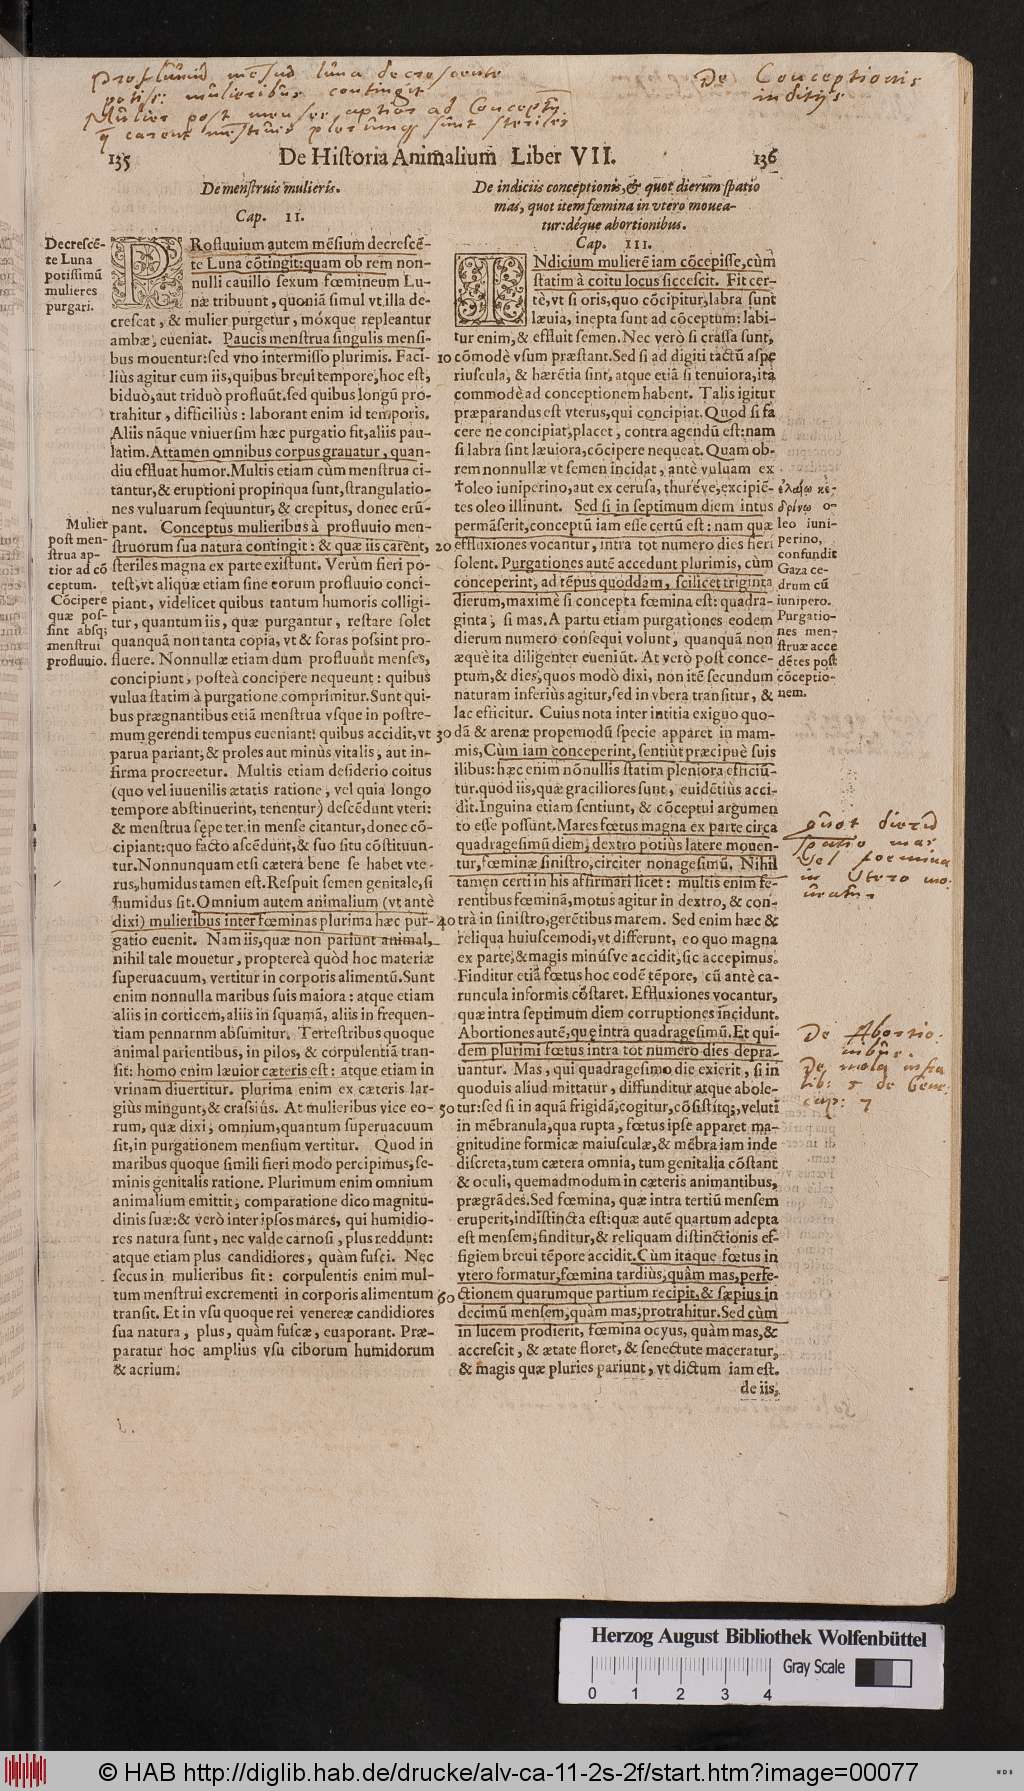 Profluuiu mensiu luna decrescente
potiss: mulieribus contingit
Mulier post menses aptior ad Conceptu.
q carent menstruis plerumq sunt steriles
De Conceptionis
inditijs
135
De Historia Animalium Liber VII.
136
De menstruis mulieris.
Cap. II.
Decrescē-
te Luna
potissimū
mulieres
purgari.
PRofluuium autem mēsium decrescē-
te Luna cōtingit: quam ob rem non-
nulli cauillo sexum fœmineum Lu-
næ tribuunt, quoniā simul vt illa de-
crescat, & mulier purgetur, móxque repleantur
ambæ, eueniat. Paucis menstrua singulis mensi-
bus mouentur: sed vno intermisso plurimis. Faci-
liùs agitur cum iis, quibus breui tempore, hoc est,
biduò, aut triduò profluūt. sed quibus longū pro-
trahitur, difficiliùs: laborant enim id temporis.
Aliis nāque vniuersim hæc purgatio fit, aliis pau-
latim. Attamen omnibus corpus grauatur, quan-
diu effluat humor. Multis etiam cùm menstrua ci-
tantur, & eruptioni propinqua sunt, strangulatio-
nes vuluarum sequuntur, & crepitus, donec erū-
pant. Conceptus mulieribus à profluuio men-
struorum sua natura contingit: & quæ iis carent,
steriles magna ex parte existunt. Verùm fieri po-
test, vt aliquæ etiam sine eorum profluuio conci-
piant, videlicet quibus tantum humoris colligi-
tur, quantum iis, quæ purgantur, restare solet
quanquā non tanta copia, vt & foras possint pro-
fluere. Nonnullæ etiam dum profluunt menses,
concipiunt, posteà concipere nequeunt: quibus
vulua statim à purgatione comprimitur. Sunt qui-
bus prægnantibus etiā menstrua vsque in postre-
mum gerendi tempus eueniant: quibus accidit, vt
parua pariant, & proles aut minùs vitalis, aut in-
firma procreetur. Multis etiam desiderio coitus
(quo vel iuuenilis ætatis ratione, vel quia longo
tempore abstinuerint, tenentur) descēdunt vteri:
& menstrua sępe ter in mense citantur, donec cō-
cipiant: quo facto ascēdunt, & suo situ cōstituun-
tur. Nonnunquam etsi cætera bene se habet vte-
rus, humidus tamen est. Respuit semen genitale, si
humidus sit. Omnium autem animalium (vt antè
dixi) mulieribus inter fœminas plurima hæc pur-
gatio euenit. Nam iis, quæ non pariunt animal,
nihil tale mouetur, proptereà quòd hoc materiæ
superuacuum, vertitur in corporis alimentū. Sunt
enim nonnulla maribus suis maiora: atque etiam
aliis in corticem, aliis in squamā, aliis in frequen-
tiam pennarum absumitur. Terrestribus quoque
animal parientibus, in pilos, & corpulentiā tran-
sit: homo enim læuior cæteris est: atque etiam in
vrinam diuertitur. plurima enim ex cæteris lar-
giùs mingunt, & crassiùs. At mulieribus vice eo-
rum, quæ dixi, omnium, quantum superuacuum
sit, in purgationem mensium vertitur. Quod in
maribus quoque simili fieri modo percipimus, se-
minis genitalis ratione. Plurimum enim omnium
animalium emittit, comparatione dico magnitu-
dinis suæ: & verò inter ipsos mares, qui humidio-
res natura sunt, nec valde carnosi, plus reddunt:
atque etiam plus candidiores, quàm fusci. Nec
secus in mulieribus fit: corpulentis enim mul-
tum menstrui excrementi in corporis alimentum
transit. Et in vsu quoque rei venereæ candidiores
sua natura, plus, quàm fuscæ, euaporant. Præ-
paratur hoc amplius vsu ciborum humidorum
& acrium.
Mulier
post men-
strua ap-
tior ad cō
ceptum.
Cōcipere
quæ pos-
sint absq;
menstrui
profluuio.
De indiciis conceptionis, & quot dierum spatio
mas, quot item fœmina in vtero mouea-
tur: déque abortionibus.
Cap. III.
INdicium mulierē iam cōcepisse, cùm
statim à coitu locus siccescit. Fit cer-
tè, vt si oris, quo cōcipitur, labra sunt
læuia, inepta sunt ad cōceptum: labi-
tur enim, & effluit semen. Nec verò si crassa sunt,
10 cōmodè vsum præstant. Sed si ad digiti tactū aspe
riuscula, & hærētia sint, atque etiā si tenuiora, ita
commodè ad conceptionem habent. Talis igitur
præparandus est vterus, qui concipiat. Quod si fa
cere ne concipiat, placet, contra agendū est: nam
si labra sint læuiora, cōcipere nequeat. Quam ob-
rem nonnullæ vt semen incidat, antè vuluam ex
†oleo iuniperino, aut ex cerusa, thuréve, excipiē-
tes oleo illinunt. Sed si in septimum diem intus
permāserit, conceptū iam esse certū est: nam quæ
20 effluxiones vocantur, intra tot numero dies fieri
solent. Purgationes autē accedunt plurimis, cùm
conceperint, ad tēpus quoddam, scilicet triginta
dierum, maximè si concepta fœmina est: quadra-
ginta, si mas. A partu etiam purgationes eodem
dierum numero consequi volunt, quanquā non
æquè ita diligenter eueniūt. At verò post conce-
ptum, & dies, quos modò dixi, non itē secundum
naturam inferiùs agitur, sed in vbera transitur, &
lac efficitur. Cuius nota inter initia exiguo quo-
30 dā & arenæ propemodū specie apparet in mam-
mis, Cùm iam conceperint, sentiūt præcipuè suis
ilibus: hæc enim nōnullis statim pleniora efficiū-
tur. quod iis, quæ graciliores sunt, euidētiùs acci-
dit. Inguina etiam sentiunt, & cōceptui argumen
to esse possunt. Mares fœtus magna ex parte circa
quadragesimū diem, dextro potiùs latere mouen-
tur, fœminæ sinistro, circiter nonagesimū. Nihil
tamen certi in his affirmari licet: multis enim fe-
rentibus fœminā, motus agitur in dextro, & con-
40 trà in sinistro, gerētibus marem. Sed enim hæc &
reliqua huiuscemodi, vt differunt, eo quo magna
ex parte, & magis minúsve accidit, sic accepimus.
Finditur etiā fœtus hoc eodē tēpore, cū antè ca-
runcula informis cōstaret. Effluxiones vocantur,
quæ intra septimum diem corruptiones incidunt.
Abortiones autē, quę intra quadragesimū. Et qui-
dem plurimi fœtus intra tot numero dies depra-
uantur. Mas, qui quadragesimo die exierit, si in
quoduis aliud mittatur, diffunditur atque abole-
50 tur: sed si in aquā frigidā, cogitur, cōsistitq;, veluti
in mēbranula, qua rupta, fœtus ipse apparet ma-
gnitudine formicæ maiusculæ, & mēbra iam inde
discreta, tum cætera omnia, tum genitalia cōstant
& oculi, quemadmodum in cæteris animantibus,
prægrādes. Sed fœmina, quæ intra tertiū mensem
eruperit, indistincta est: quæ autē quartum adepta
est mensem, finditur, & reliquam distinctionis ef-
figiem breui tēpore accidit. Cùm itaque fœtus in
vtero formatur, fœmina tardiùs, quàm mas, perfe-
60 ctionem quarumque partium recipit, & sæpius in
decimū mensem, quàm mas, protrahitur. Sed cùm
in lucem prodierit, fœmina ocyus, quàm mas, &
accrescit, & ætate floret, & senectute maceratur,
& magis quæ pluries pariunt, vt dictum iam est.
de iis,
ἐλαίῳ κε-
δρίνῳ o-
leo iuni-
perino,
confundit
Gaza ce-
drum cū
iunipero.
Purgatio-
nes men-
struæ acce
dētes post
cōceptio-
nem.
quot dierū
spatio mas
vel foemina
in Utero mo-
ueatur
De Abortio-
nibus.
De mola infra
lib: 5 de Gene:
cap: 7
Herzog August Bibliothek Wolfenbüttel
Gray Scale
0 1 2 3 4
© HAB http://diglib.hab.de/drucke/alv-ca-11-2s-2f/start.htm?image=00077